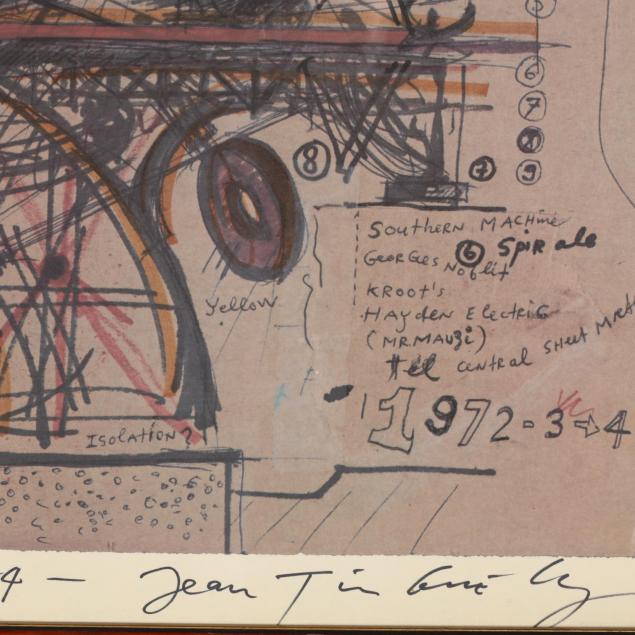 5
6
7
8
9
⑧
Southern Machine
⑥ Spirale
Georges Noblit
Kroot's
Hayden Electric
(MR. MAUZI)
Central Sheet
Yellow
1972-3→4
Isolation?
4 — Jean Tinguely